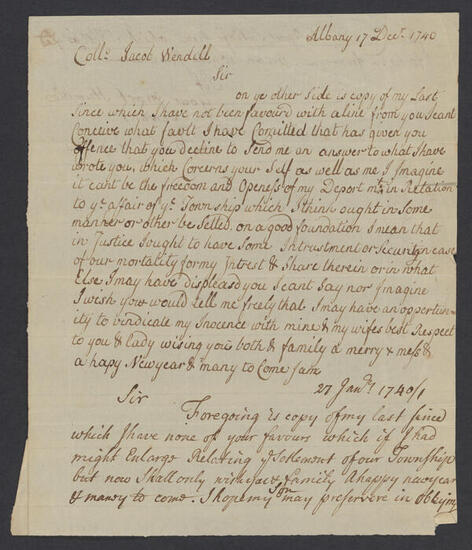 Albany 17 Decr. 1740
Collo. Jacob Wendell
Sir
on ye other Side is copy of my Last
Since which I have not been favourd with a line from you I cant
Concive what fault I have Comitted that has given you
offence that you decline to Send me an answer to what I have
wrote you, which Concerns your Self as well as me I Imagine
it cant be the freedom and Openess of my Deportmt. in Relation
to ye affair of ye Township which I think ought in Some
manner or other be Setled on a good foundation I mean that
in Justice I ought to have Some Intrustment or Security in case
of our mortality for my Intrest & Share therein or in what
Else I may have displeasd you I cant Say nor Imagine
I wish you would tell me freely that I may have an opportun-
ity to vindicate my Inocence with mine & my wifes best Respect
to you & Lady wising you both & family a merry &
a hapy New year & many to Come I am
27 Janry. 1740/1
Sir
Foregoing is copy of my last since
which I have none of your favours which if I had
might Enlarge Relating ye Setlement of our Township
but now I shall only wish you & family a happy new year
& many to come. I hope my may preserve in obliging